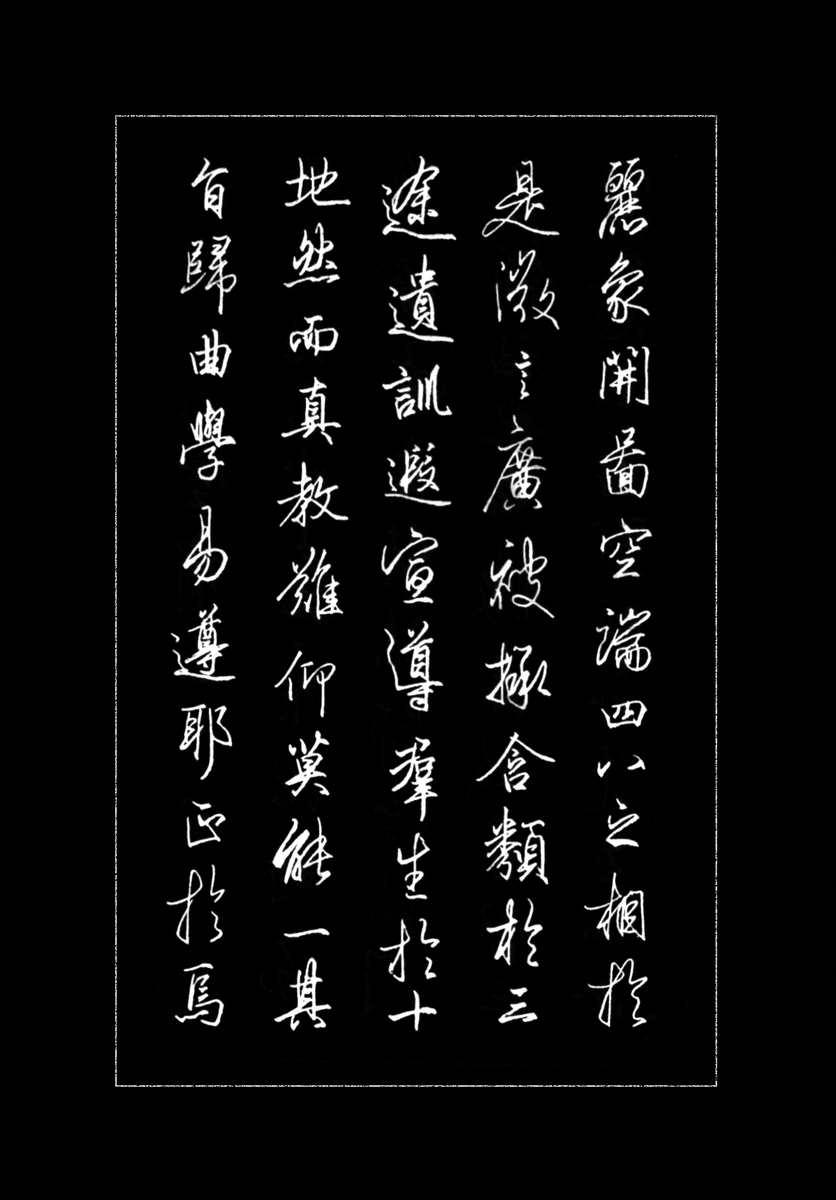 麗象開圖空端四八之相於
是微言廣被拯含類於三
途遺訓遐宣導羣生於十
地然而真教難仰莫能一其
旨歸曲學易遵耶正於焉